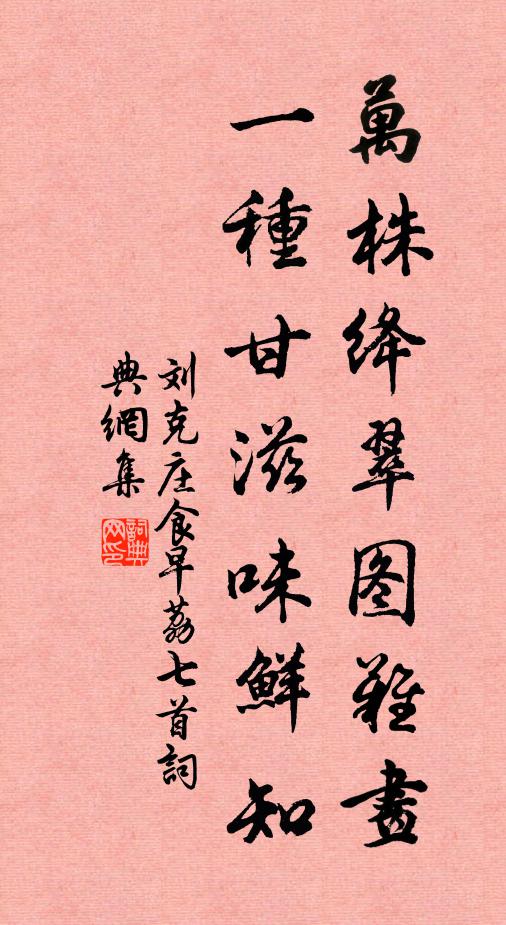 萬株绛翠图難畫
一種甘滋味鮮知
刘克庄食早荔七首詞
典網集
詞典网印